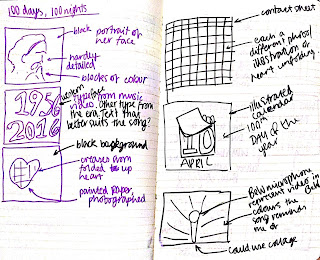 100 days, 100 nights
block portrait of
her face
hardly
detailed
blocks of colour
1956
2016
western
typeface
from music
video. Other type from
the era/text that
better suits the song?
block background
creases from
folded up
heart
painted paper,
photographed
contact sheet
each a photo/
different
illustration of
heart unfolding
illustrated
calendar
100th
Day of the
year
10
APRIL
B&W microphone
represent video in
colours the
song reminds
me of
could use collage